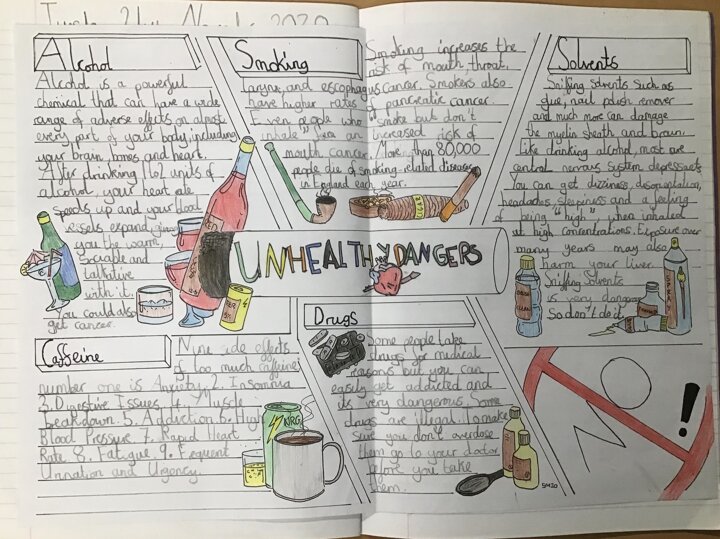 November 2020
Alcohol
Alcohol is a powerful
chemical that can have a wide
range of adverse effects on almost
every part of your body, including
your brain, bones and heart.
After drinking 1 to 2 units of
alcohol, your heart rate
speeds up and your blood
vessels expand, giving
you the warm,
sociable and
talkative
with it.
You could also
get cancer.
Smoking
larynx, and esophagus
have higher rates
Even people who
inhale
mouth cancer.
Smoking increases the
risk of mouth, throat,
cancer. Smokers also
pancreatic cancer.
smoke but don't
increased risk of
More than 80,000
people die of smoking-related diseases
in England each year.
Solvents
Sniffing solvents such as
glue, nail polish remover
and much more can damage
the myelin sheath and brain.
Like drinking alcohol, most are
central nervous system depressants
You can get dizziness, desorientation,
headaches, sleepiness and a feeling
of being "high" when inhaled
at high concentrations. Exposure over
many years may also
harm your liver.
Sniffing solvents
is very dangerous
So don't do it.
UNHEALTHY DANGERS
SPRAY
Caffeine
Nine side effects
of too much caffeine:
number one is Anxiety. 2. Insomnia
3. Digestive Issues 4. Muscle
breakdown. 5. Addiction 6. High
Blood Pressure 7. Rapid Heart
Rate 8. Fatigue. 9. Frequent
Urination and Urgency.
NRG
Drugs
Some people take
drugs for medical
reasons but you can
easily get addicted and
its very dangerous. Some
drugs are illegal. To make
sure you don't overdose
them go to your doctor
before you take
them.
NO !